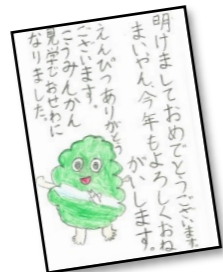 明けましておめでとうございます。
まいやん、今年もよろしくおね
がいします。
えんぴつありがとう
ございます。
こうみんかん
見学でおせわに
なりました。